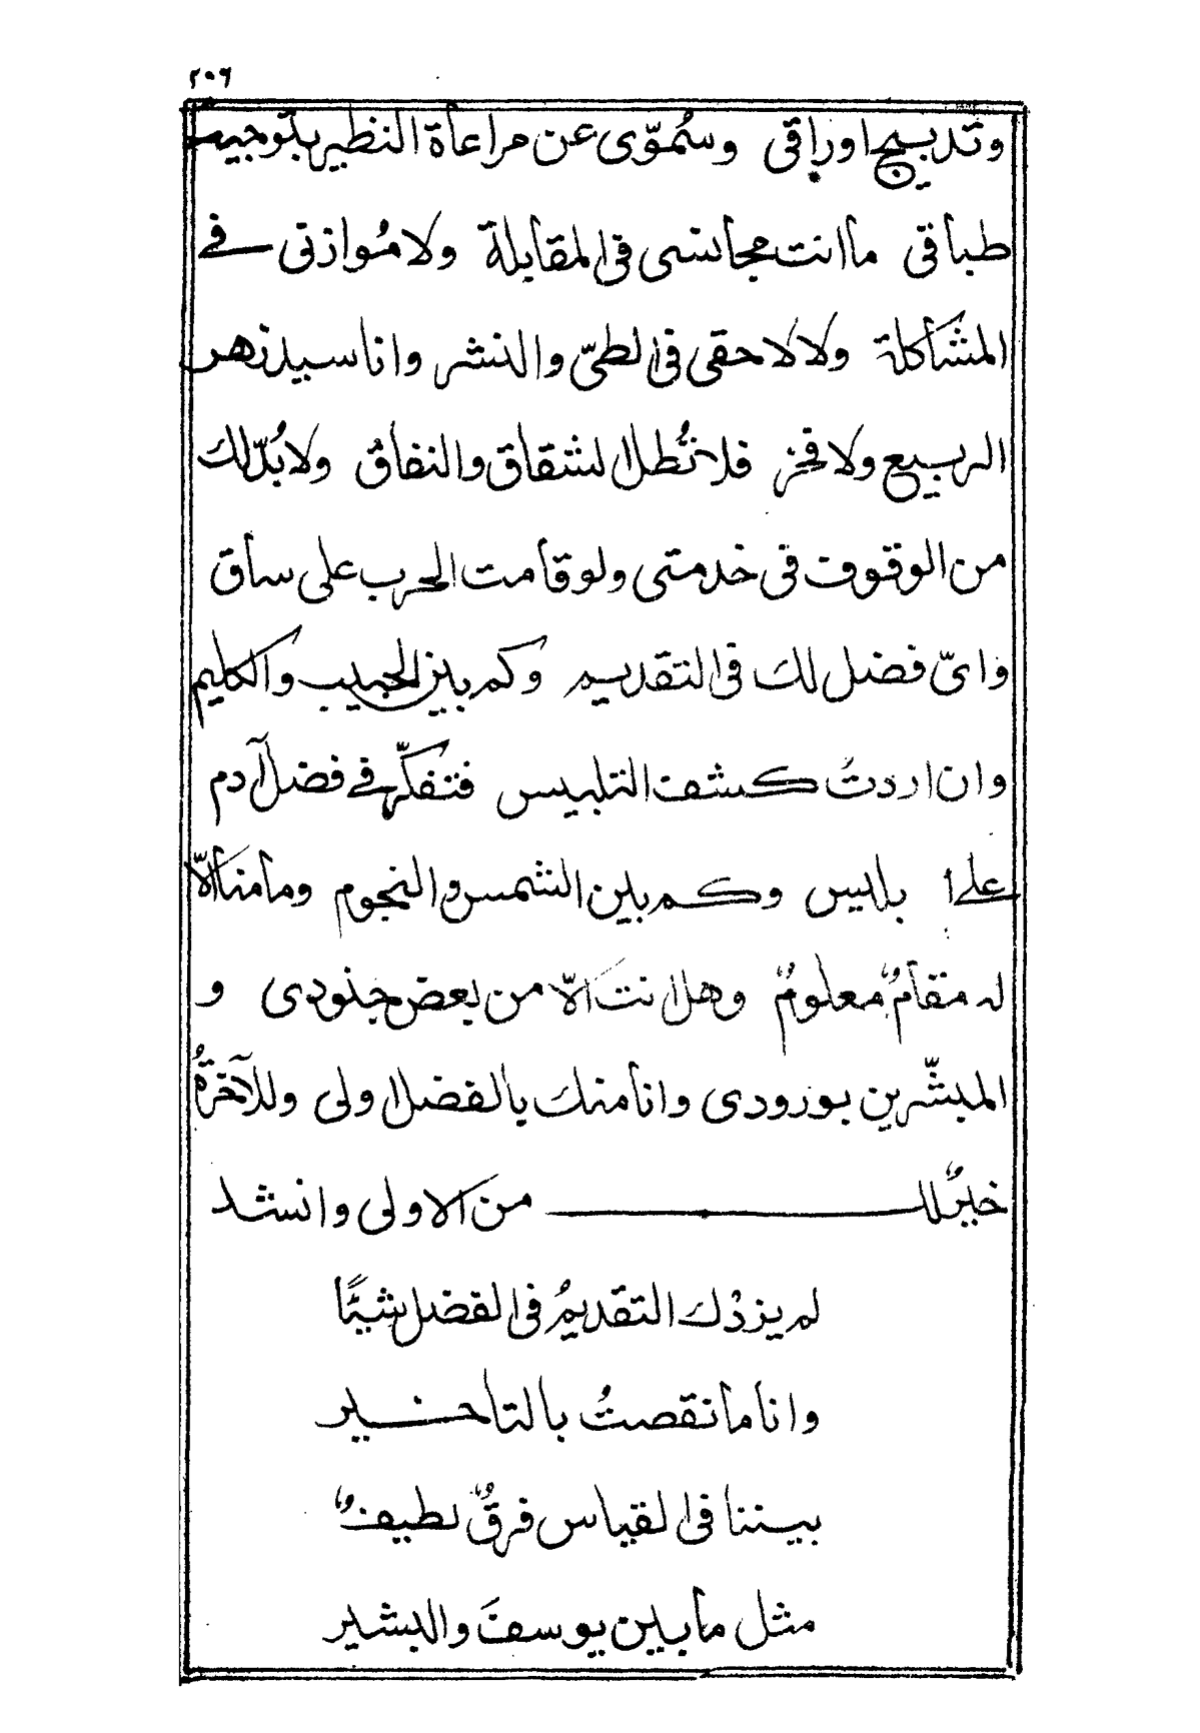 ٢٠٦
وتدبيج اوراقى وسُموّى عن مراعاة النظير بتوجيه
طباقى ماانت مجانسى فى المقابلة ولا مُوازنى فى
المشاكلة ولا لاحقى فى الطىّ والنشر وانا سيد زهر
الربيع ولا فخر فلا تُطل الشقاق والنفاق ولا بُدّ لك
من الوقوف فى خدمتى ولو قامت الحرب على ساق
واىّ فضل لك فى التقديم وكم بين الحبيب والكليم
وان اردتُ كشف التلبيس فتفكّر فى فضل آدم
على ابليس وكم بين الشمس والنجوم ومامنا الّا
له مقامٌ معلومٌ وهل انت الّا من بعض جنودى و
المبشّرين بورودى وانا منك بالفضل اولى وللآخرةُ
خيرٌ لك من الاولى وانشد
لم يزدْك التقديمُ فى الفضل شيئًا
وانا ما نقصتُ بالتاخير
بيننا فى القياس فرقٌ لطيفٌ
مثل مابين يوسفَ والبشير